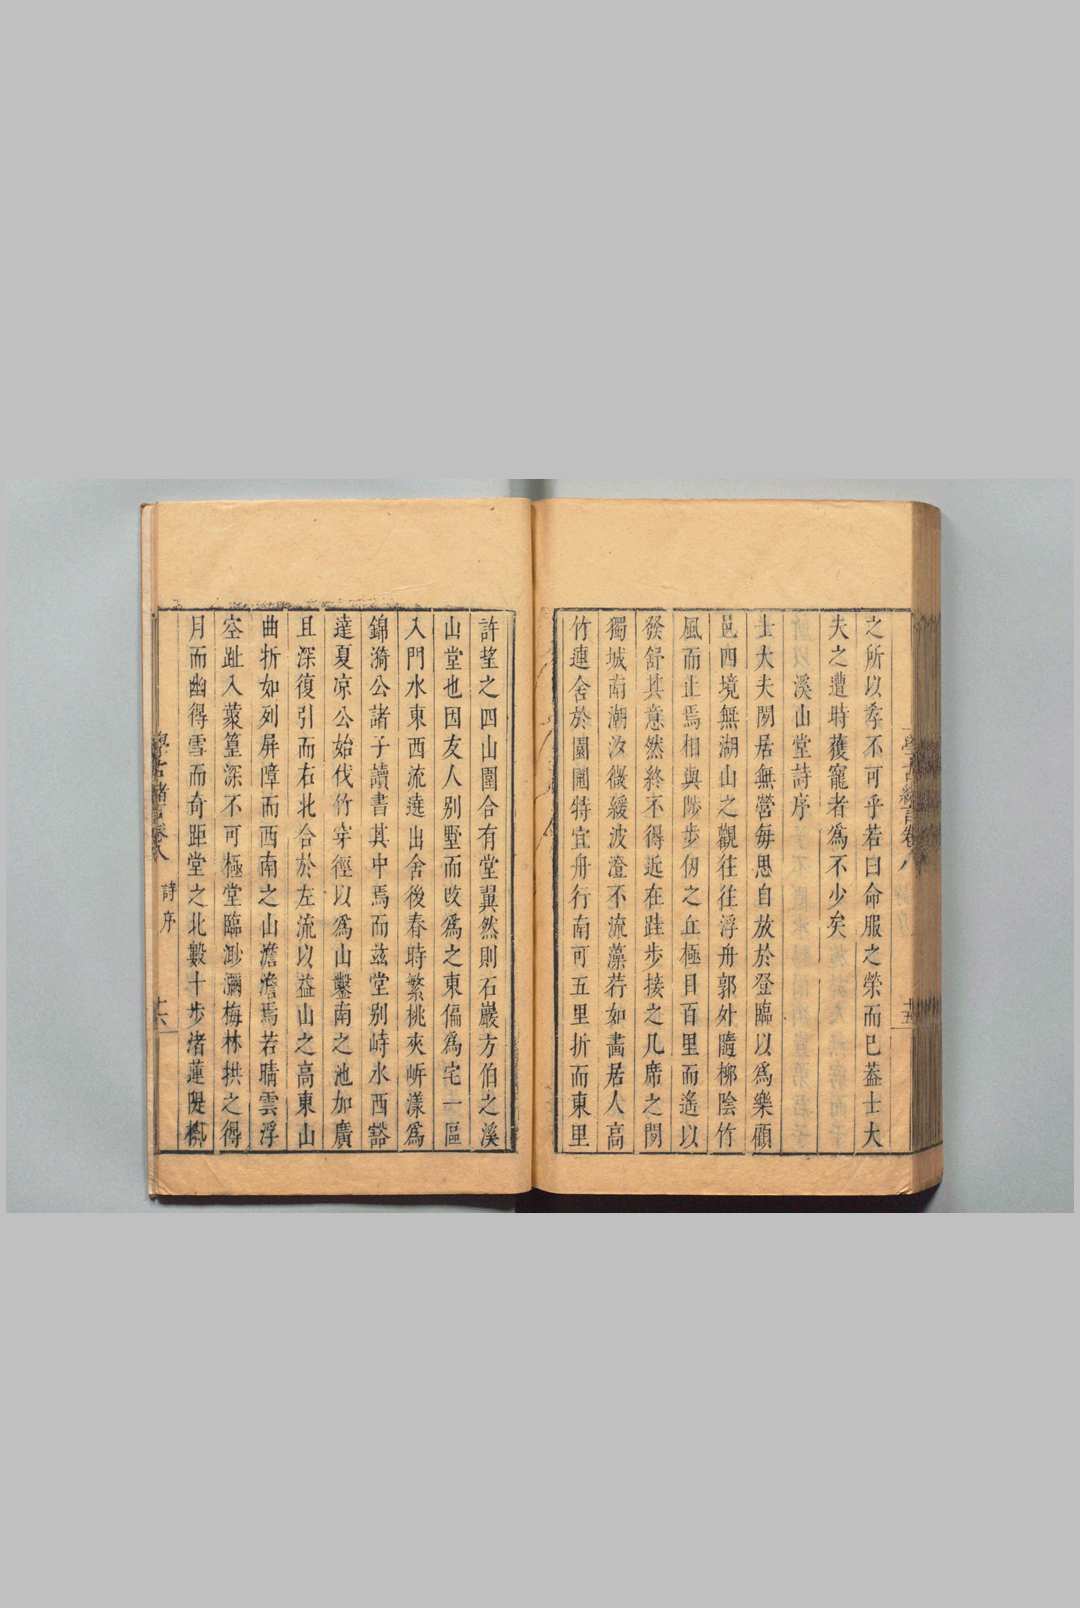 之所以孝不可乎若曰命服之榮而已葢士大
夫之遭時獲寵者爲不少矣
溪山堂詩序
士大夫閒居無營每思自放於登臨以爲樂顧
邑四境無湖山之觀往往浮舟郭外隨柳陰竹
風而止焉相與陟步仞之丘極目百里而遙以
發舒其意然終不得近在跬步接之几席之間
獨城南潮汐微緩波澄不流藻荇如畵居人高
竹連舍於園圃特宜舟行南可五里折而東里
許望之四山圍合有堂翼然則石巖方伯之溪
山堂也因友人別墅而改爲之東偏爲宅一區
入門水東西流遶出舍後春時繁桃夾岍漾爲
錦漪公諸子讀書其中焉而兹堂別峙水西豁
達夏凉公始伐竹穿徑以爲山鑿南之池加廣
且深復引而右北合於左流以益山之高東山
曲折如列屏障而西南之山澹澹焉若晴雲浮
空趾入叢篁深不可極堂臨渺瀰梅林拱之得
月而幽得雪而奇距堂之北數十步渚蓮隄桃
學古緒言卷八
詩序
十六